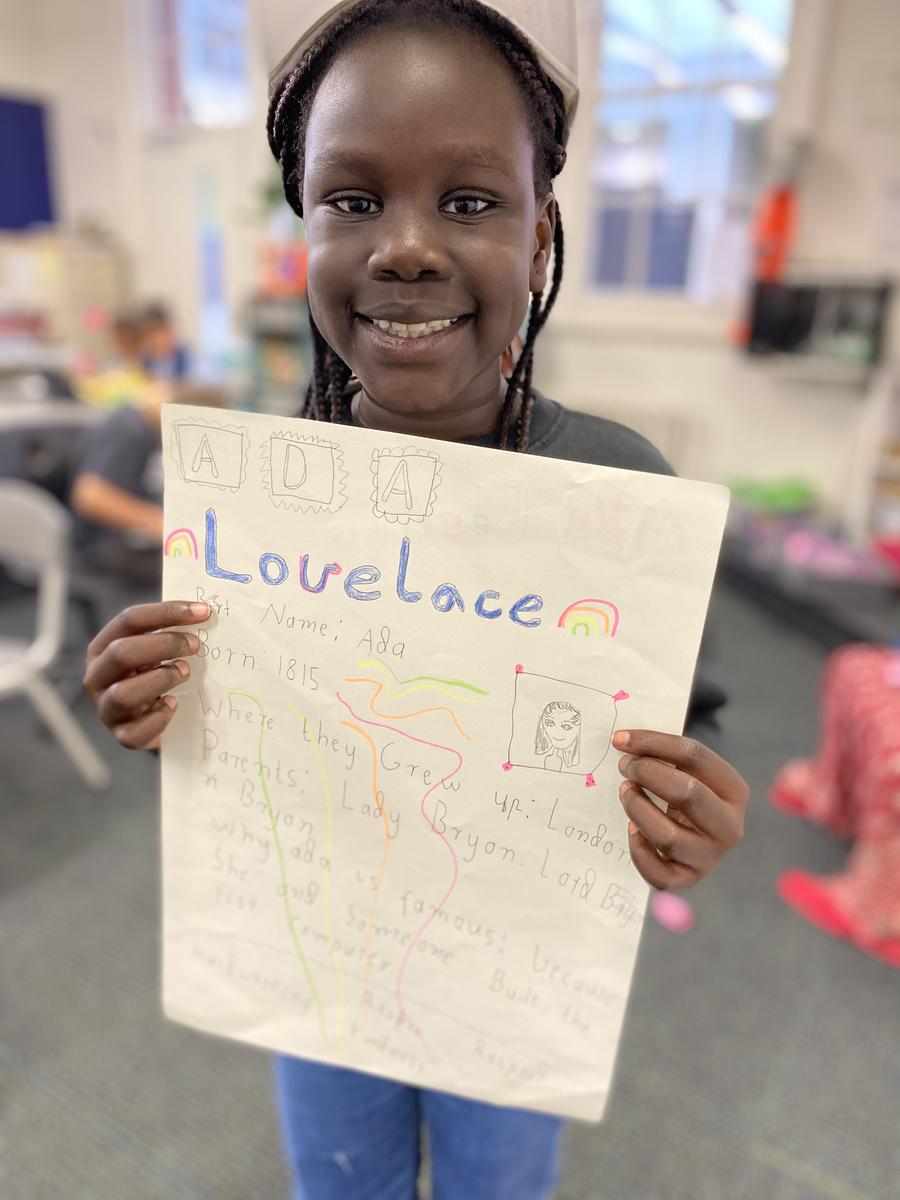 ADA
Lovelace
Name: Ada
Born: 1815
Where they Grew up: London
Parents: Lady Bryon. Lord
Bryon
why ada is famous: because
She and Someone Built the
Computer